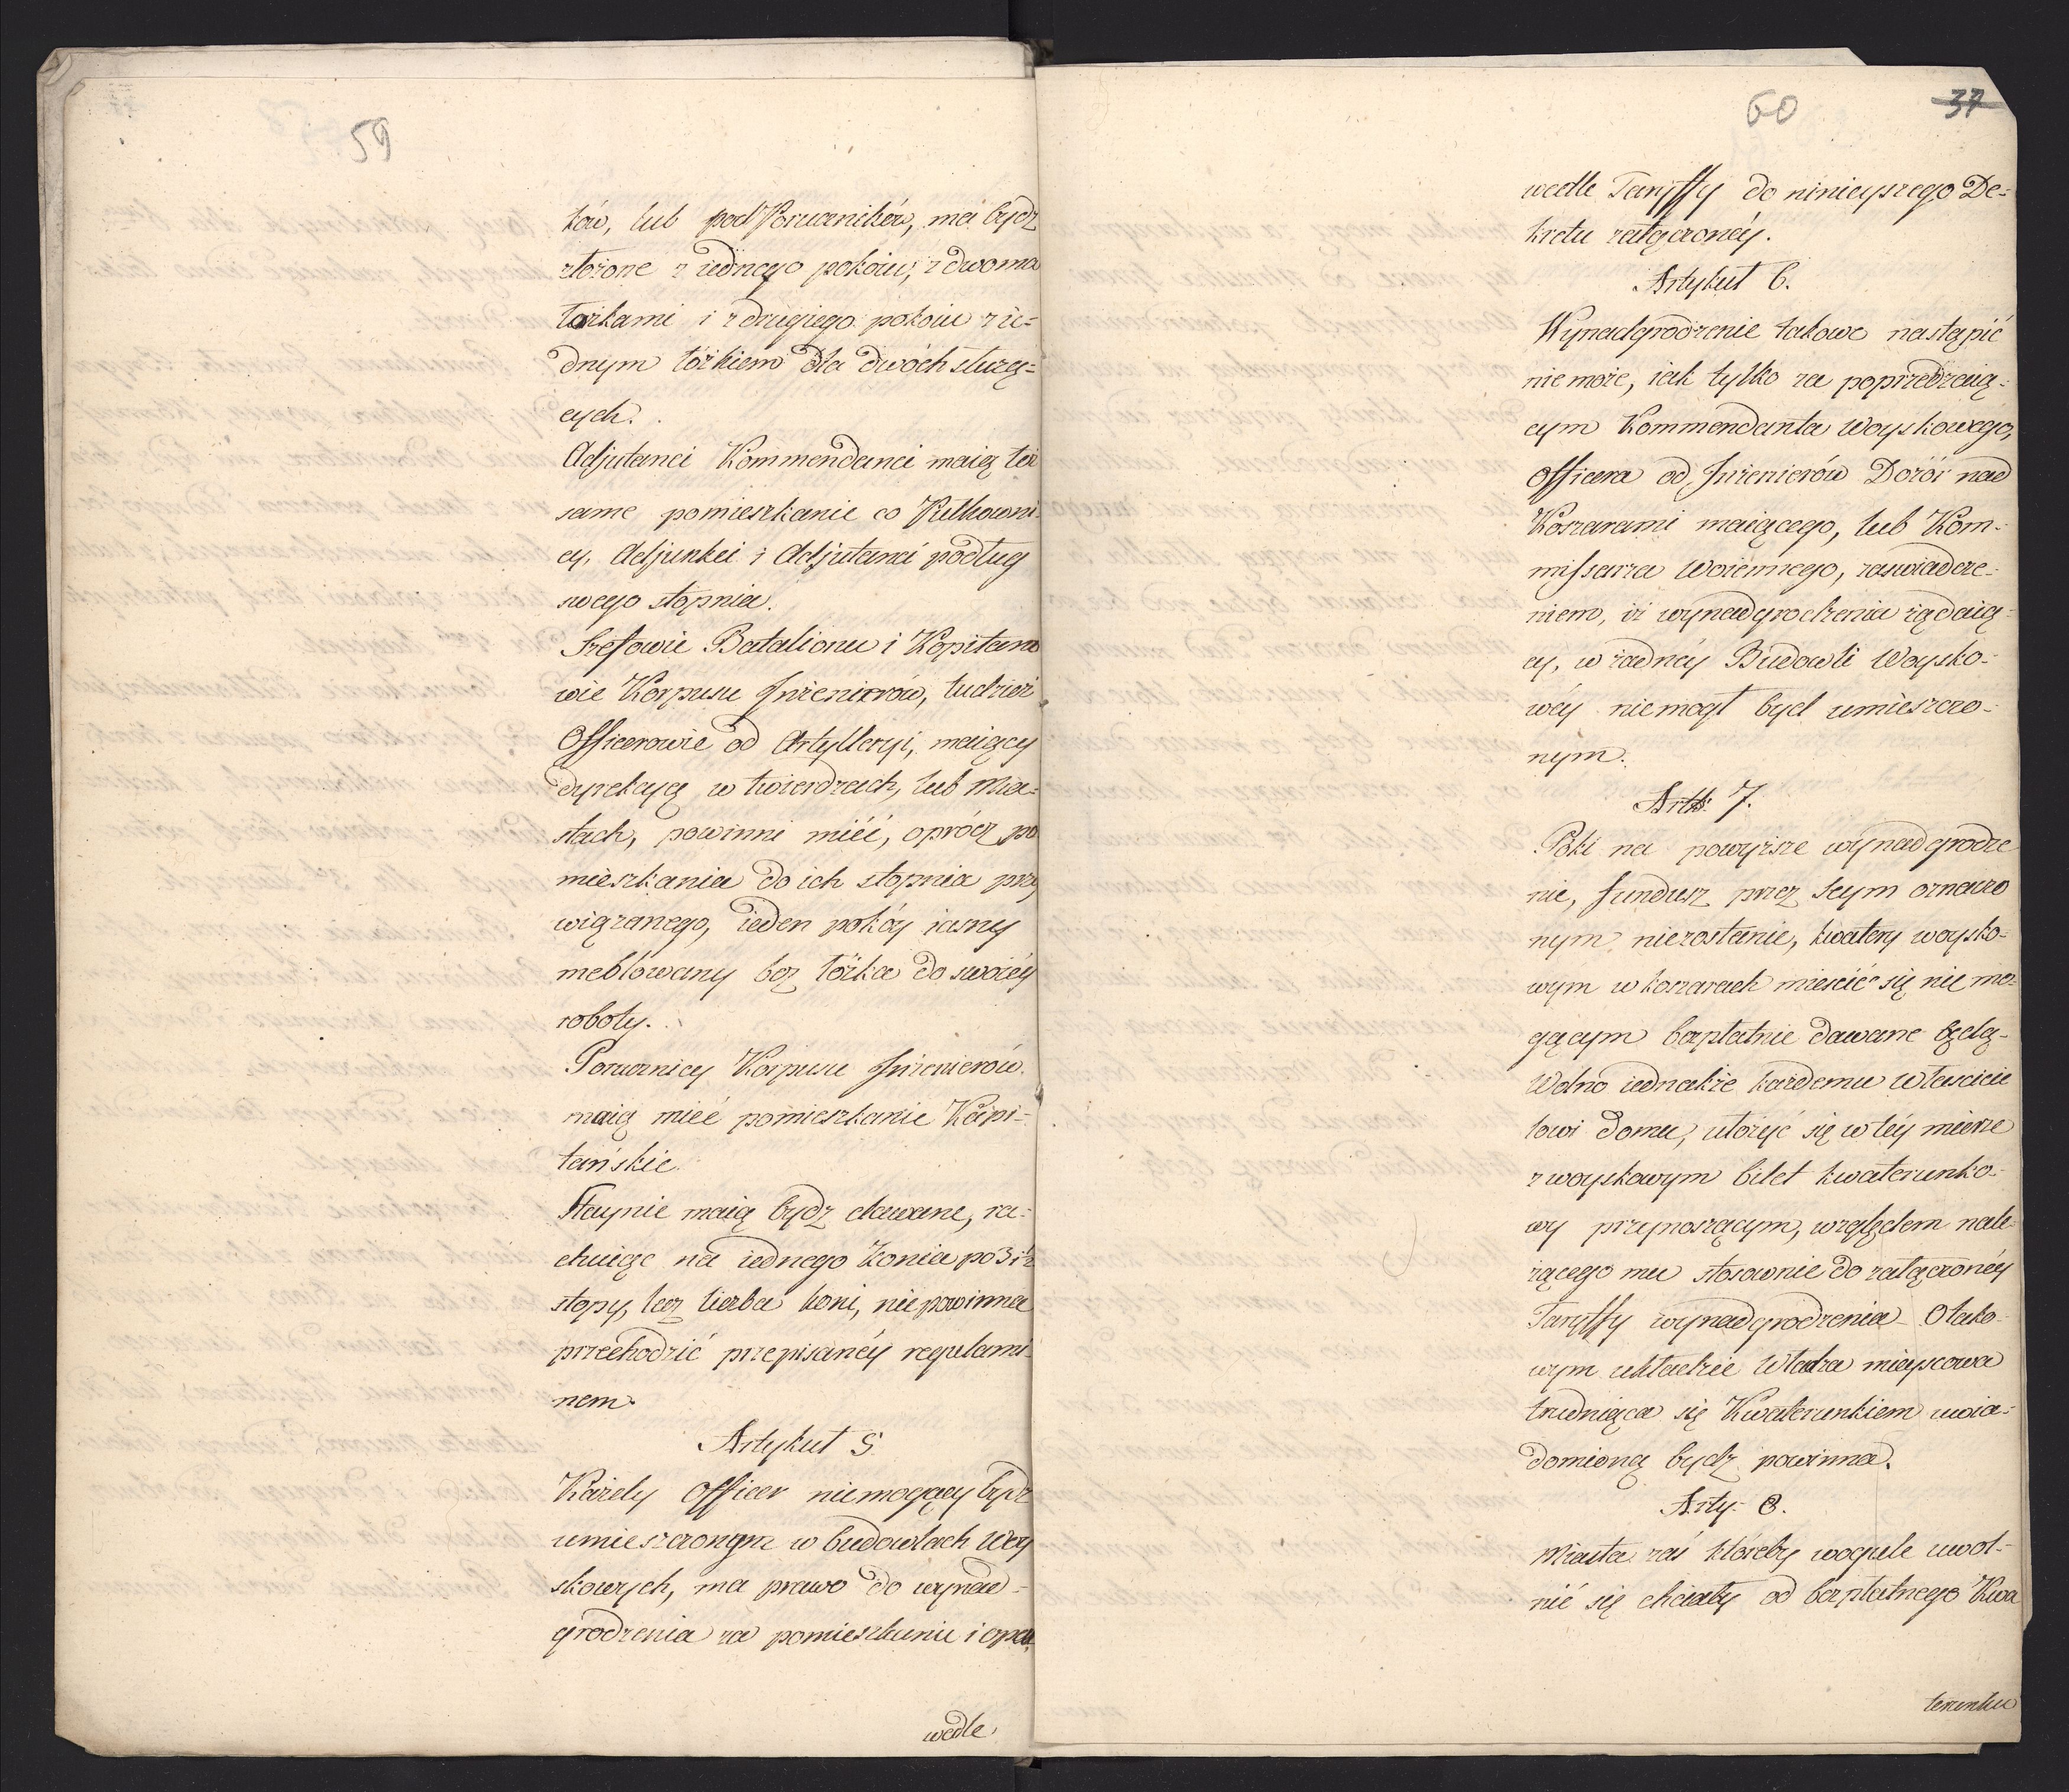 59
ków, lub podPoruczników, ma bydź
złożone z iednego pokoiu, z dwoma
łóżkami i z drugiego pokoiu z ie-
dnym łóżkiem dla dwóch służą-
cych.
Adjutanci Kommendanci maią też
same pomieszkanie co Pułkowni-
cy, Adjunkci i Adjutanci podług
swego stopnia.
Szefowie Batalionu i Kapitano
wie Korpusu Inżenierów, tudzież
Officerowie od Artylleryi, maiący
dyrekcyą w twierdzach, lub Mia-
stach, powinni mieć, oprócz po
mieszkania do ich stopnia przy
wiązanego, ieden pokóy iasny
meblowany bez łóżka do swoiéy
roboty.
Porucznicy Korpusu Inżenierów
maią mieć pomieszkanie Kapi-
tańskie.
Staynie maią bydź dawane, ra-
chuiąc na iednego konia po 3 1/2
stopy, lecz liczba koni, niepowinna
przechodzić przepisanéy regulami-
nem.
Artykuł 5
Każdy Officer niemogący bydź
umieszczonym w budowlach Woy
skowych, ma prawo do wynad-
grodzenia za pomieszkanie i opał,
wedle
60
37
wedle Taryffy do ninieyszego De-
kretu załączonéy.
Artykuł 6.
Wynadgrodzenie takowe nastąpić
nie może, iak tylko za poprzedzaią-
cym Kommendanta Woyskowego,
Officera od Inżenierów Dozór nad
Koszarami maiącego, lub Kom-
missarza Woiennego, zaświadcze-
niem, iż wynadgrodzenia żądaią-
cy, w żadnéy Budowli Woysko-
wéy niemógł być umieszczo-
nym.
Artk: 7.
Póki na powyższe wynadgrodze
nie, fundusz przez Seym oznaczo
nym niezostanie, kwatery woysko-
wym w koszarach mieścić się nie mo-
gącym bezpłatnie dawane będą.
Wolno iednakże każdemu właścicie
lowi domu, ułożyć się w téy mierze
z woyskowym bilet kwaterunko-
wy przynoszącym, względem nale-
żącego mu stosownie do załączonéy
Taryffy wynadgrodzenia. O tako-
wym układzie Władza mieyscowa
trudniąca się Kwaterunkiem uwia-
domioną bydź powinna.
Arty: 8.
Miasta zaś któreby wogule uwol-
nić się chciały od bezpłatnego Kwa
terunku